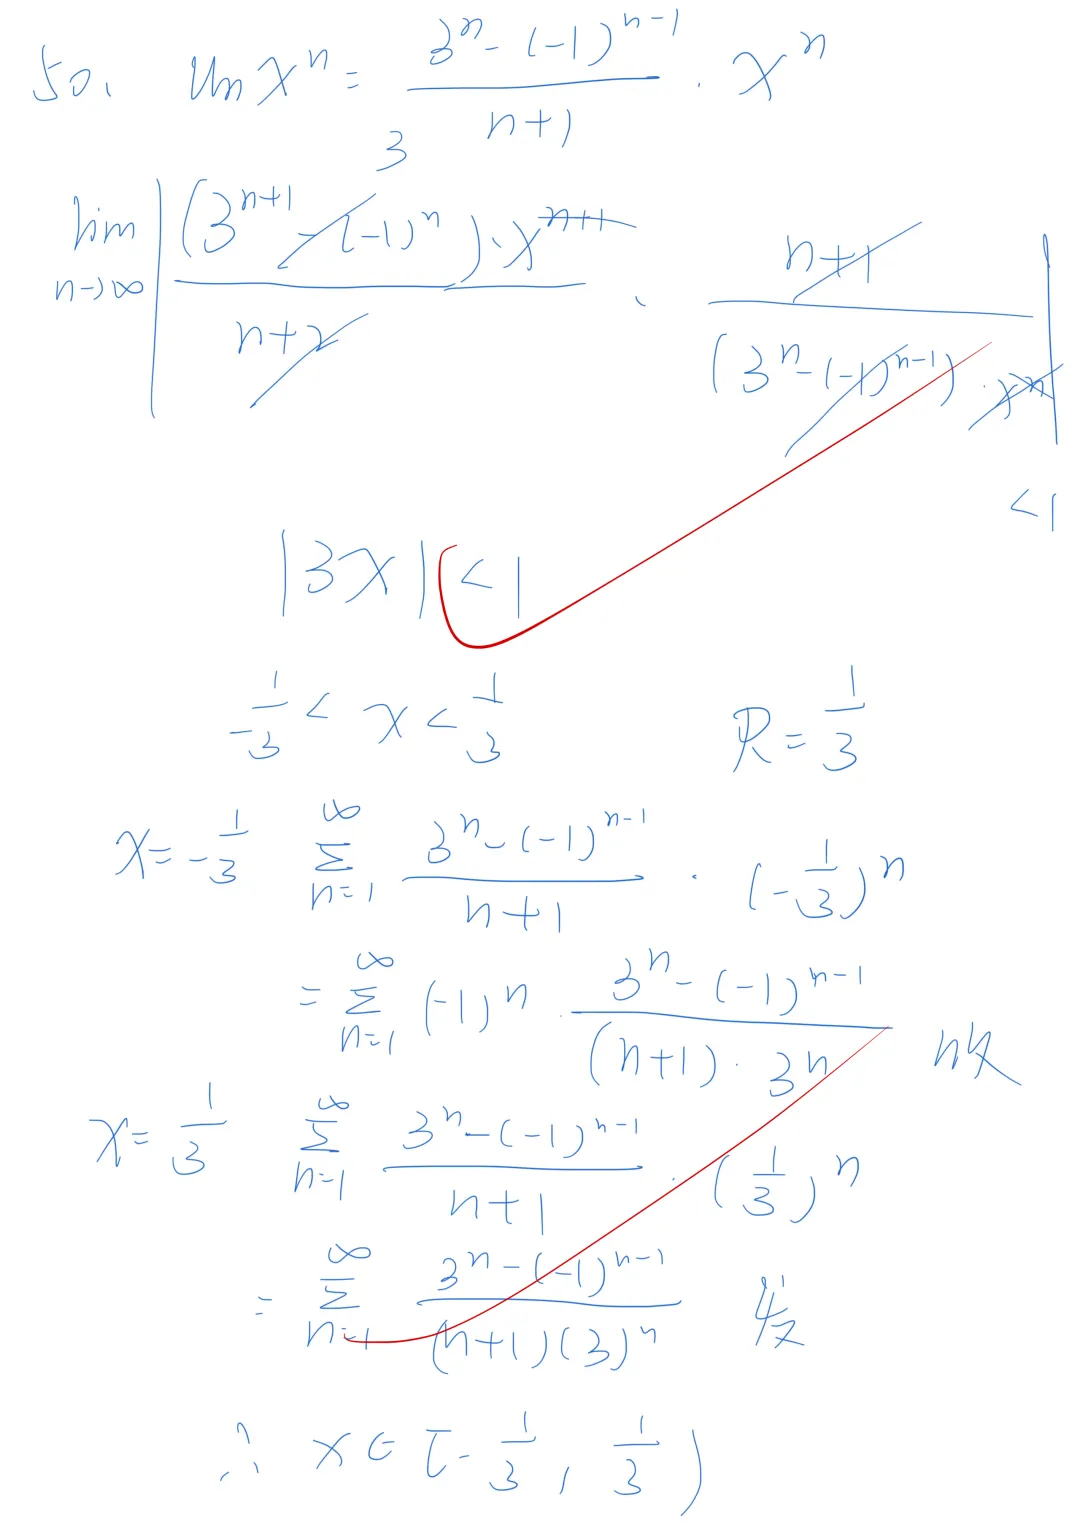 50. Un xⁿ = (3ⁿ - (-1)ⁿ⁻¹)/(n+1) · xⁿ
3
lim n→∞ | ((3ⁿ⁺¹ - (-1)ⁿ)·xⁿ⁺¹)/(n+2) · (n+1)/((3ⁿ - (-1)ⁿ⁻¹)·xⁿ) |
<1
|3x| < 1
-1/3 < x < 1/3 R = 1/3
x = -1/3 ∞ Σ n=1 (3ⁿ - (-1)ⁿ⁻¹)/(n+1) · (-1/3)ⁿ
= ∞ Σ n=1 (-1)ⁿ · (3ⁿ - (-1)ⁿ⁻¹)/((n+1)·3ⁿ) 收
x = 1/3 ∞ Σ n=1 (3ⁿ - (-1)ⁿ⁻¹)/(n+1) · (1/3)ⁿ
= ∞ Σ n=1 (3ⁿ - (-1)ⁿ⁻¹)/((n+1)(3)ⁿ)
∴ x ∈ [-1/3, 1/3)